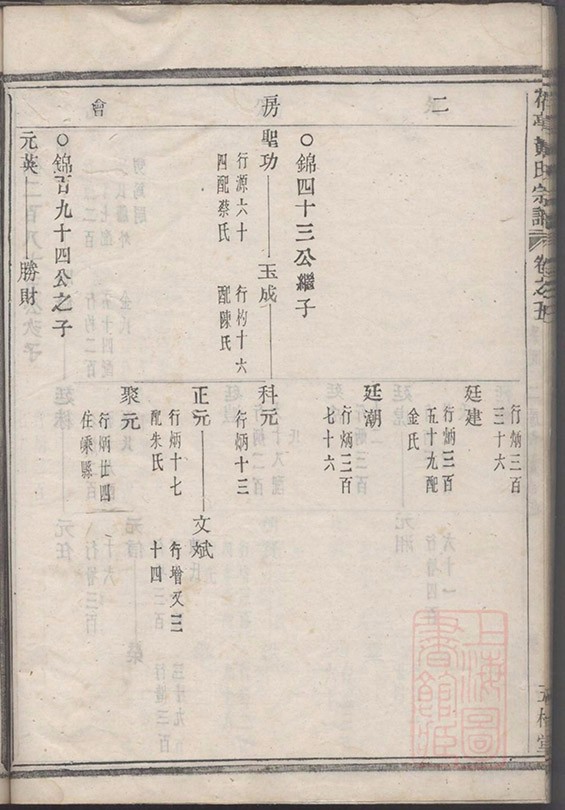 鄭氏宗譜
卷之五
二房會
行炳三百
三十六
廷建
行炳三百
五十九配
金氏
廷潮
行炳三百
七十六
○錦四十三公繼子
聖功
行源六十
四配蔡氏
玉成
行杓十六
配陳氏
科元
行炳十三
正元
行炳十七
配朱氏
文斌
行增又三
十四
聚元
行炳廿四
住嵊縣
○錦百九十四公之子
元英
勝財
上海圖
書館藏